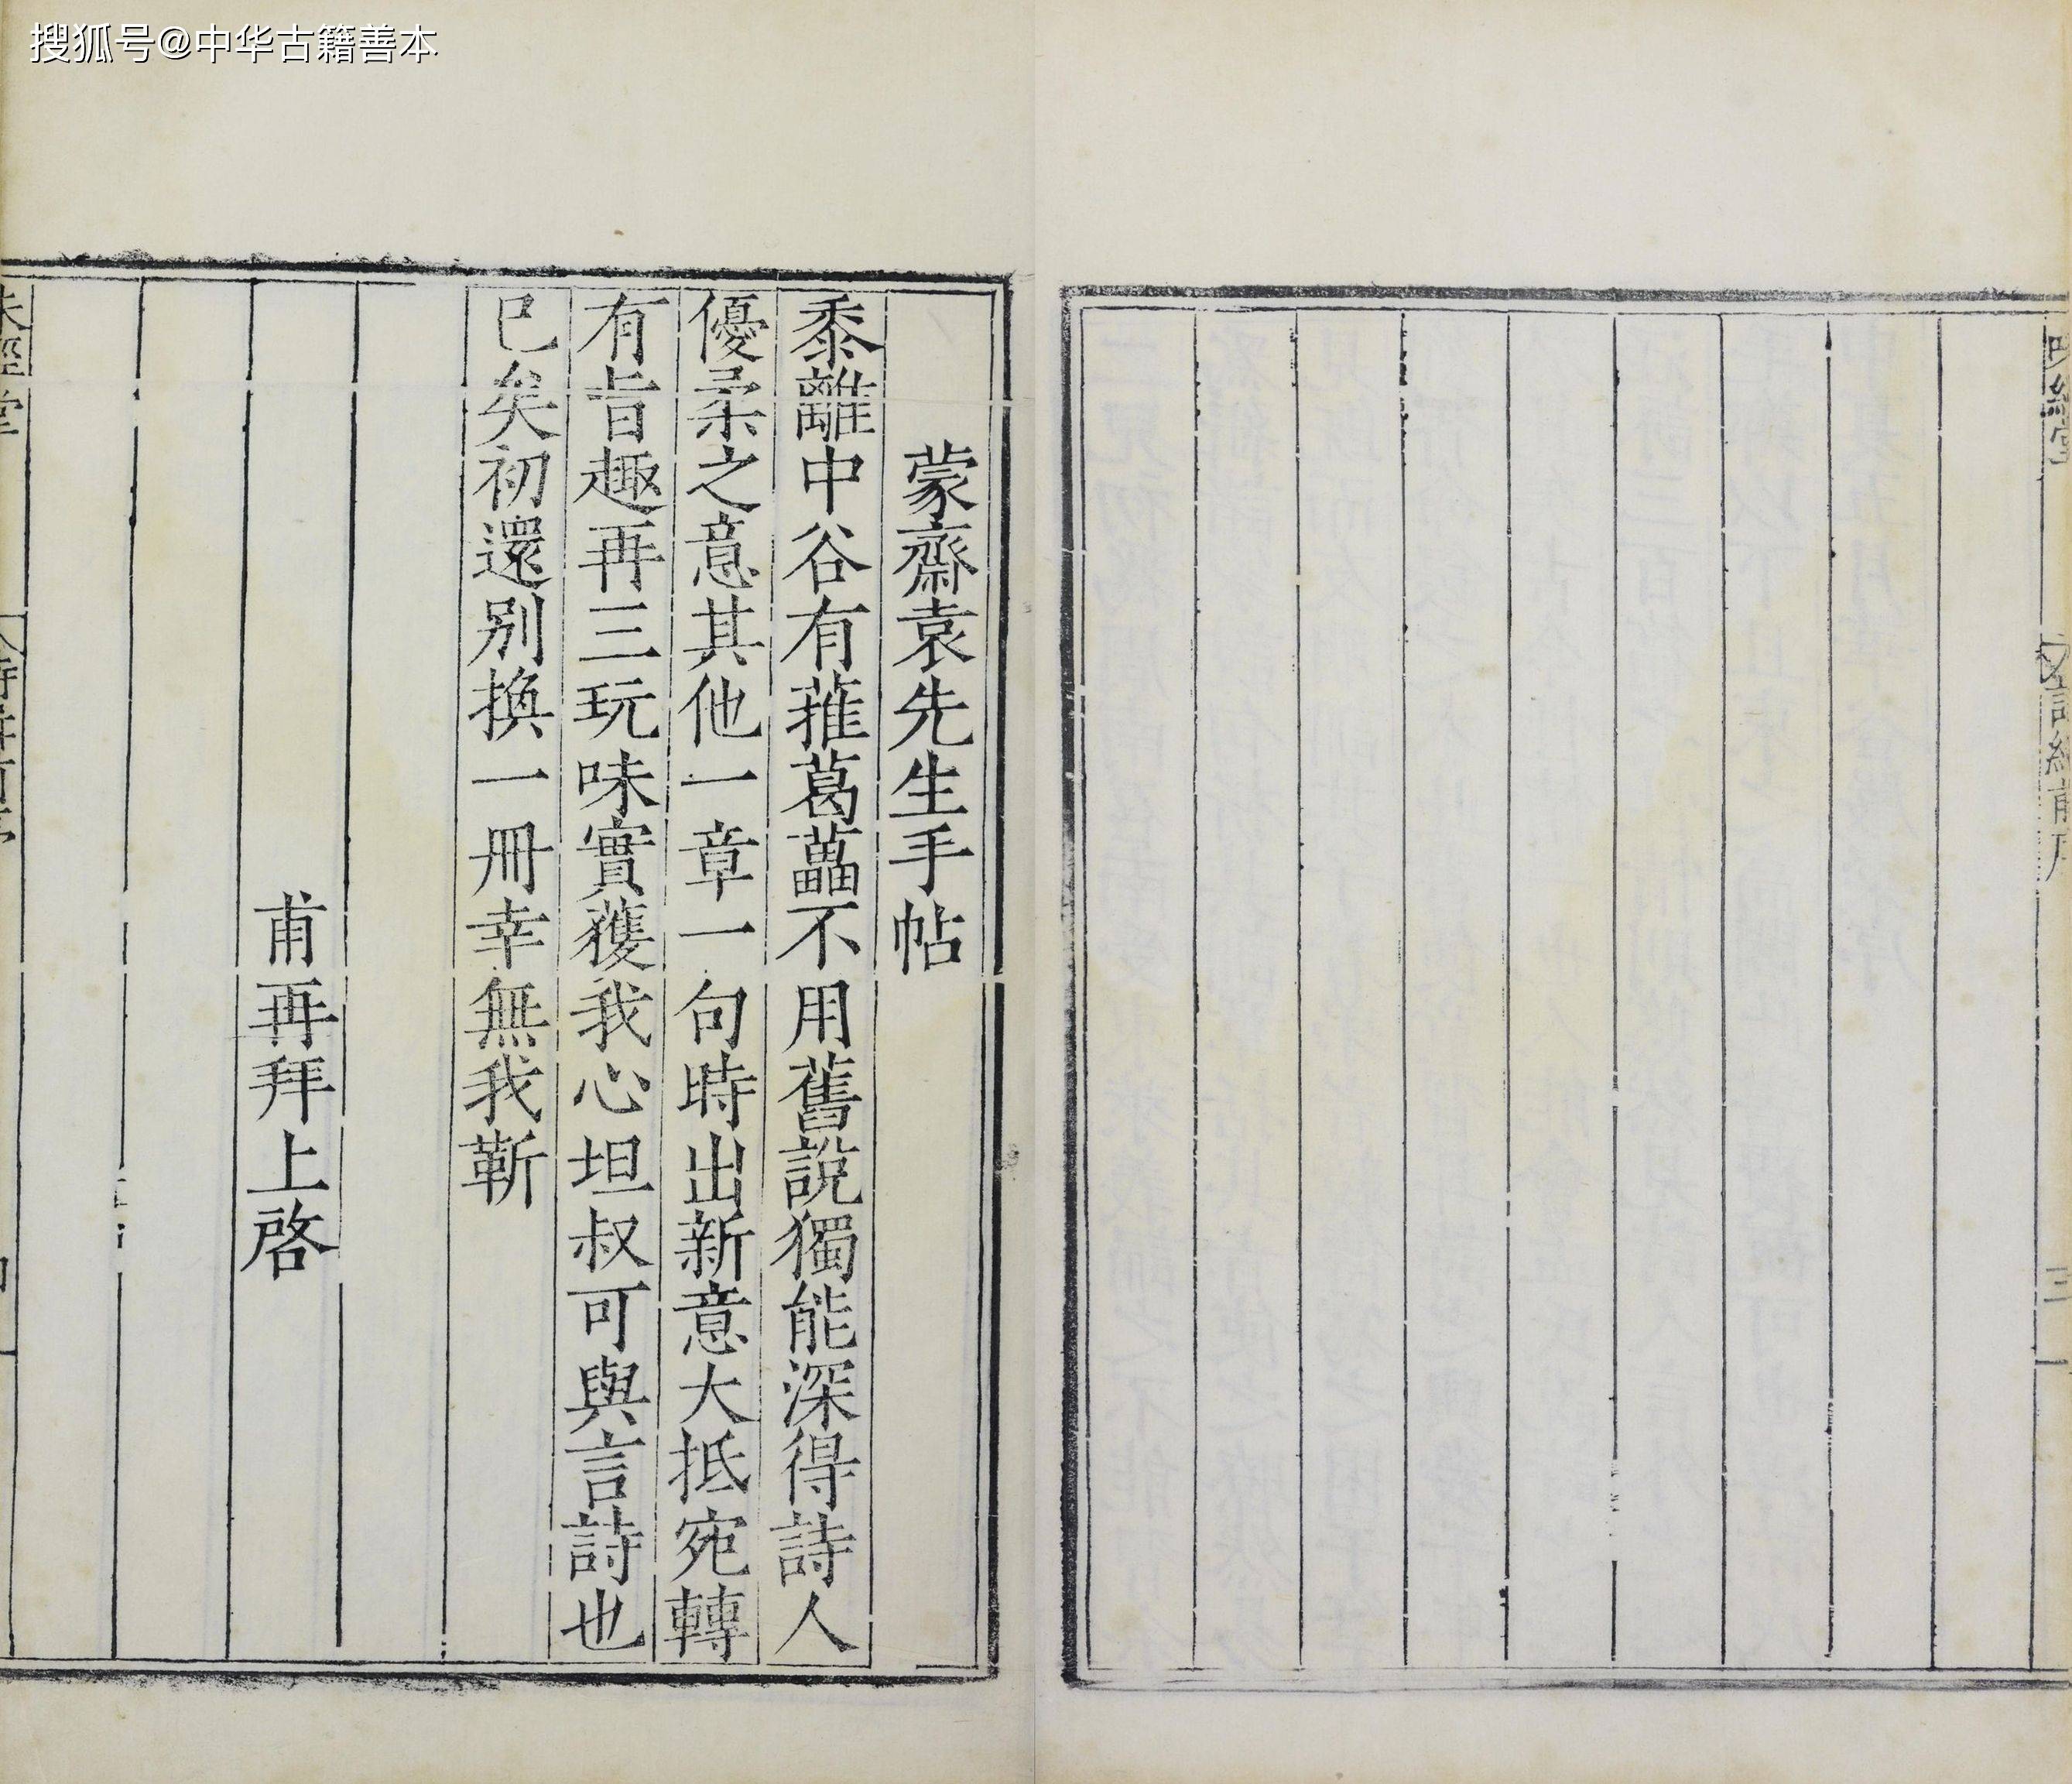 搜狐号@中华古籍善本
蒙齋袁先生手帖
黍離中谷有蓷葛藟不用舊說獨能深得詩人
優柔之意其他一章一句時出新意大抵宛轉
有旨趣再三玩味實獲我心坦叔可與言詩也
巳矣初還别換一冊幸無我靳
甫再拜上啓